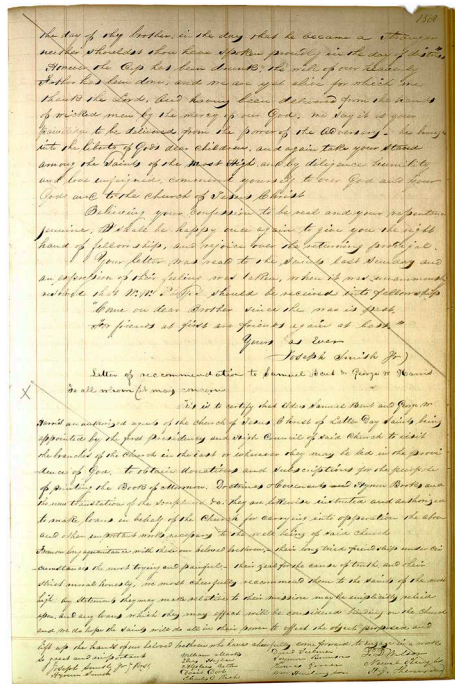 the day of thy brother, in the day that he became a stranger
neither shouldst thou have spoken proudly in the day of distress
However the Cup has been drunk, the will of our Heavenly
Father has been done, and we are yet alive for which we
thank the Lord. And having been delivered from the hands
of wicked men by the mercy of our God, we say it is your
privilege to be delivered from the power of the Adversary — be brought
into the liberty of God's dear children, and again take your stand
among the Saints of the Most High and by diligence humility
and love unfeigned, commend yourself to our God and your
God and to the church of Jesus Christ
Believing your confession to be real and your repentance
genuine, I shall be happy once again to give you the right
hand of fellowship, and rejoice over the returning prodigal.
Your letter was read to the Saints last Sunday and
an expression of their feeling was taken, when it was unanimously
resolved that W. W. Phelps should be received into fellowship
"Come on dear Brother since the war is past,
For friends at first are friends again at last"
Yours as Ever
Joseph Smith Jr)
Letter of recommendation to Samuel Bent & George W Harris
To all whom it may concern
This is to certify that Elders Samuel Bent and George W
Harris are authorized agents of the Church of Jesus Christ of Latter Day Saints, being
appointed by the first Presidency and High Council of said Church to visit
the branches of the Church in the East or wherever they may be led in the provi
dence of God, to obtain donations and subscriptions for the purpose
of printing the Book of Mormon, Doctrines & Covenants and Hymn Books and
the new translation of the Scriptures &c. they are likewise instructed and authorized
to make loans in behalf of the Church for carrying into opperation the above
and other important works necessary to the well being of said Church
their long tried friendships under cir
cumstances the most trying and painful — their zeal for the cause of truth, and their
strict moral honesty, we most cheerfully recommend them to the saints of the most
high. Any statements they may make relative to their mission may be implicitly relied
upon, and any loans which they may effect will be considered binding on the Church
and we do hope the Saints will do all in their power to effect the object proposed and
left up the hands of our beloved brethren who have cheerfully come forward to engage in a work
so great and important
Joseph Smith Jr Pres
Hyrum Smith
William Marks
Elias Higbee